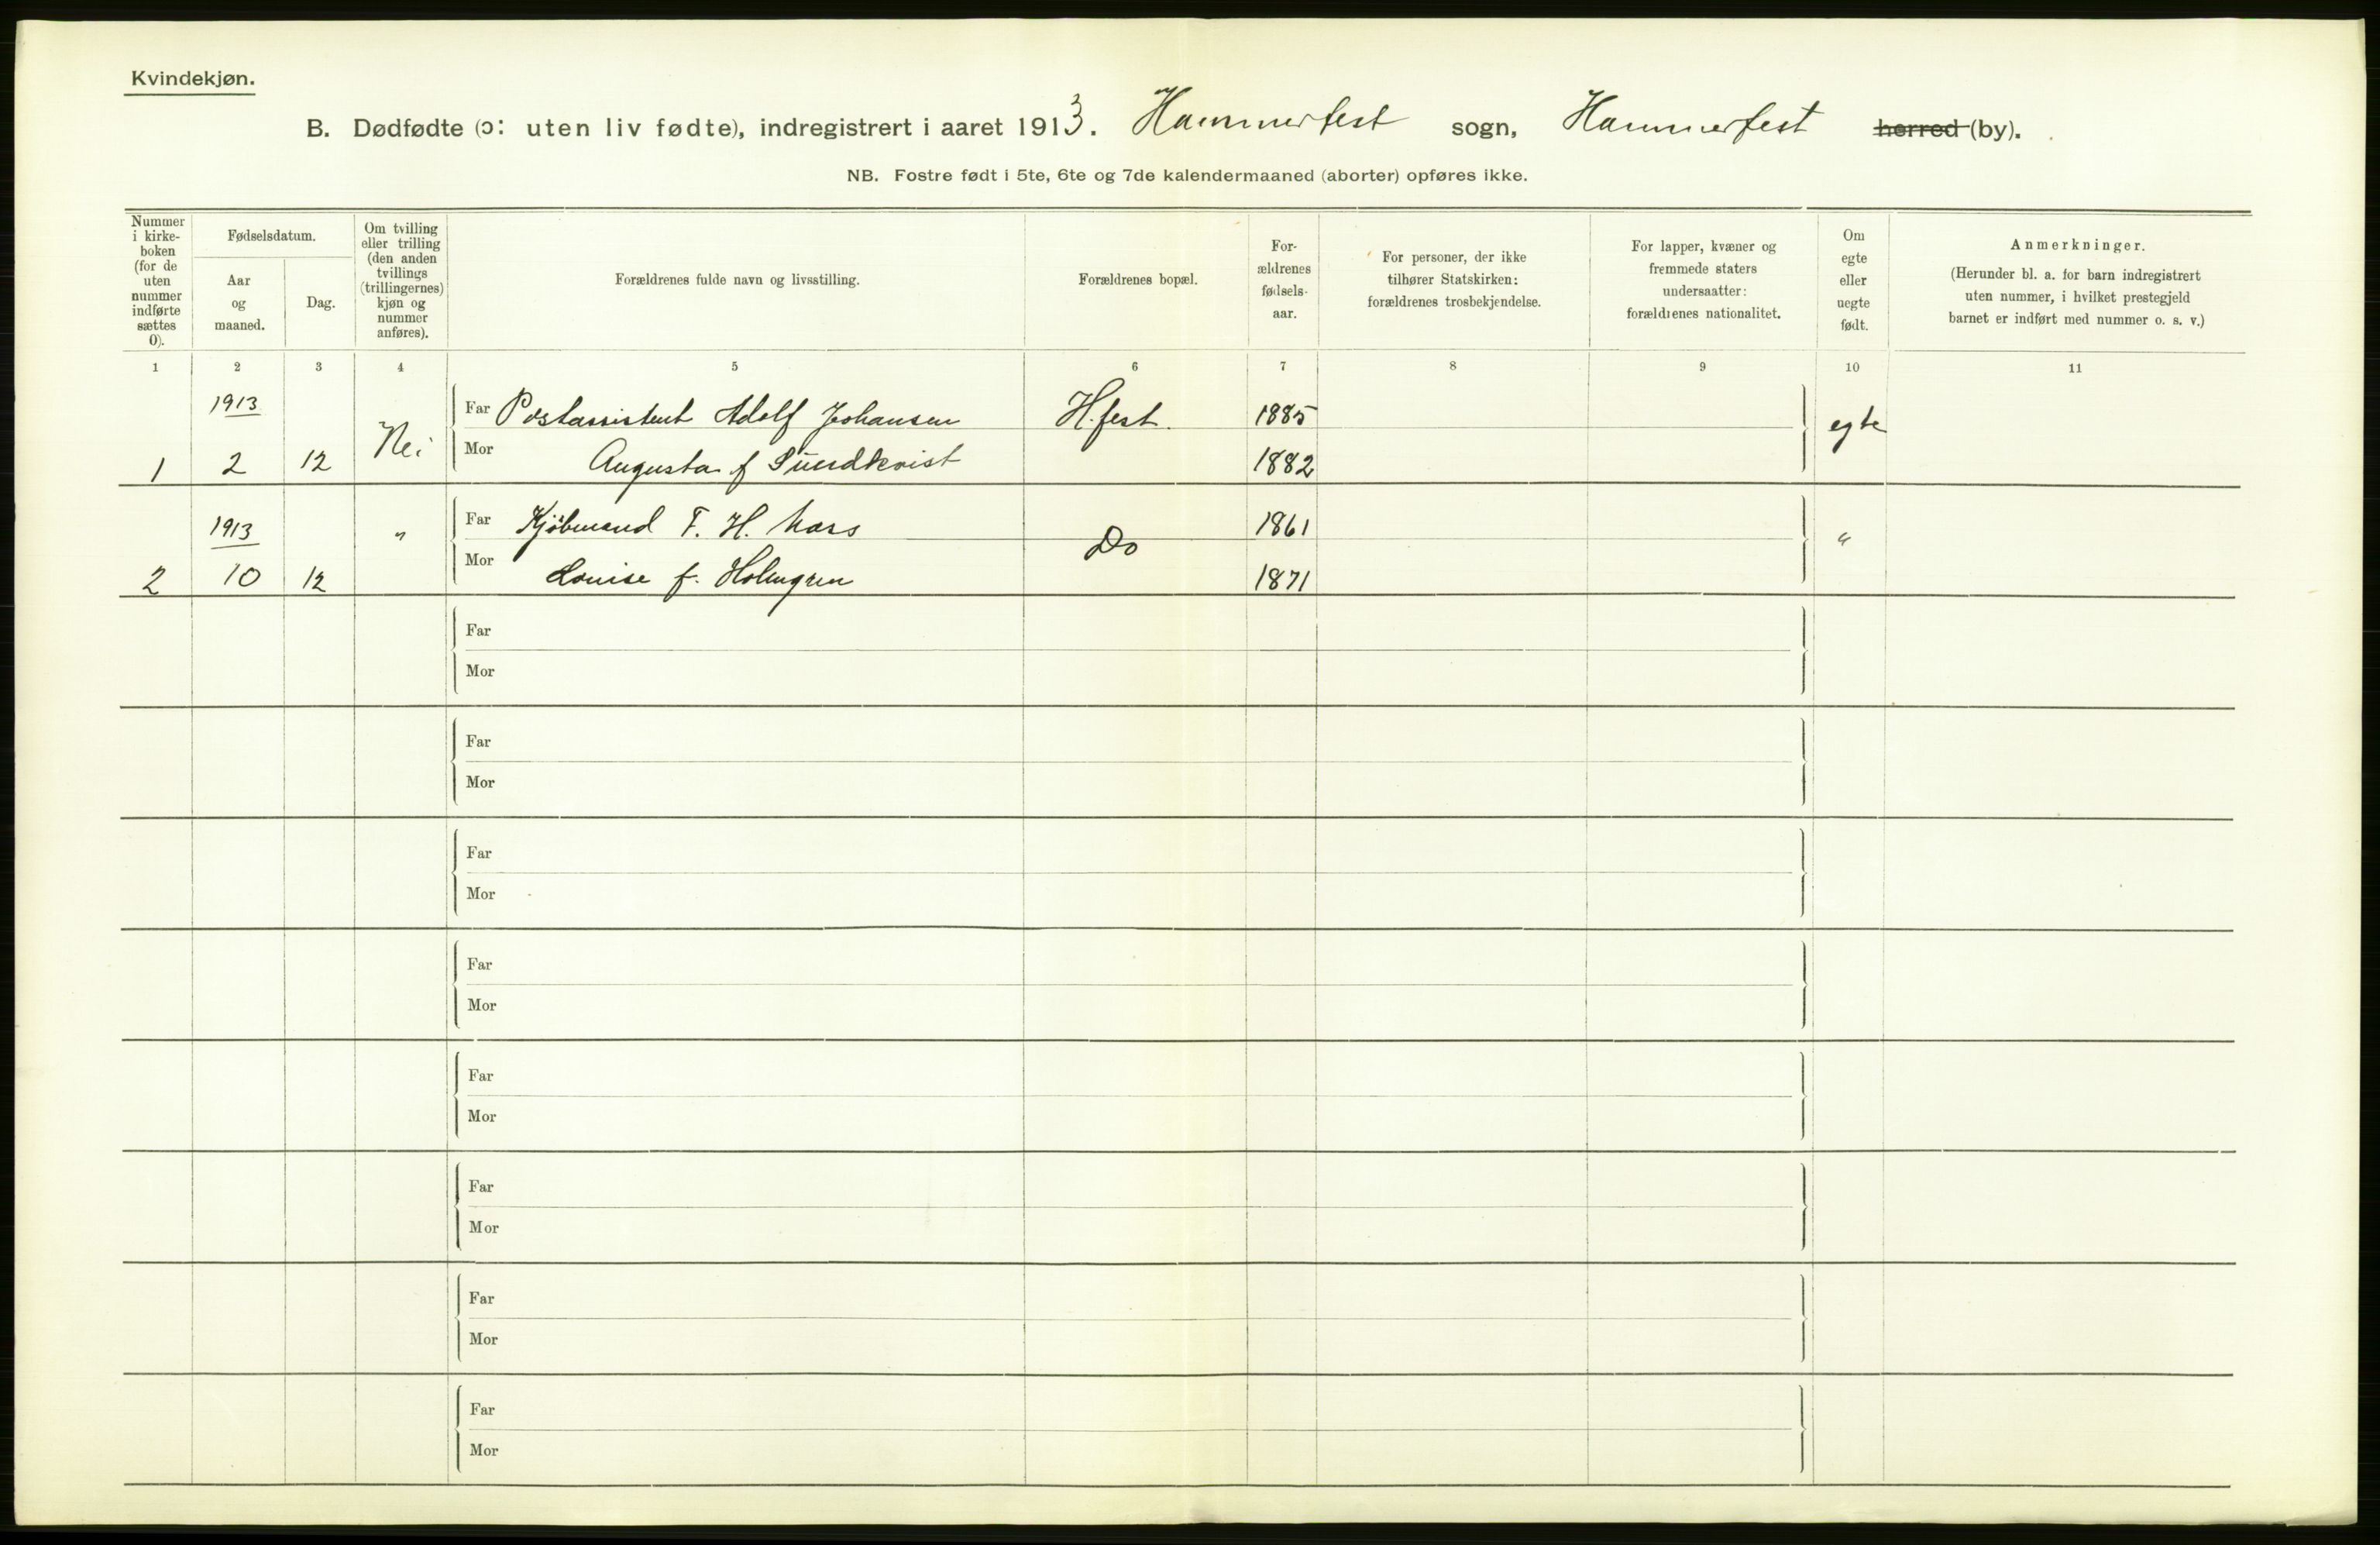 Kvindekjøn.
B. Dødfødte (ɔ: uten liv fødte), indregistrert i aaret 1913. Hammerfest sogn, Hammerfest herred (by).
NB. Fostre født i 5te, 6te og 7de kalendermaaned (aborter) opføres ikke.
Nummer
i kirke-
boken
(for de
uten
nummer
indførte
sættes
0).
Fødselsdatum.
Aar
og
maaned.
Dag.
Om tvilling
eller trilling
(den anden
tvillings
(trillingernes)
kjøn og
nummer
anføres).
Forældrenes fulde navn og livsstilling.
Forældrenes bopæl.
For-
ældrenes
fødsels-
aar.
For personer, der ikke
tilhører Statskirken:
forældrenes trosbekjendelse.
For lapper, kvæner og
fremmede staters
undersaatter:
forældrenes nationalitet.
Om
egte
eller
uegte
født.
Anmerkninger.
(Herunder bl. a. for barn indregistrert
uten nummer, i hvilket prestegjeld
barnet er indført med nummer o. s. v.)
1 2 3 4 5 6 7 8 9 10 11
1913 Nei Far Postassistent Adolf Johansen H.fest. 1885 egte
1 2 12 Mor Augusta f Sundkvist 1882
1913 " Far Kjøbmand F. H. Do 1861 "
2 10 12 Mor Louise f. Holmgren 1871
Far
Mor
Far
Mor
Far
Mor
Far
Mor
Far
Mor
Far
Mor
Far
Mor
Far
Mor